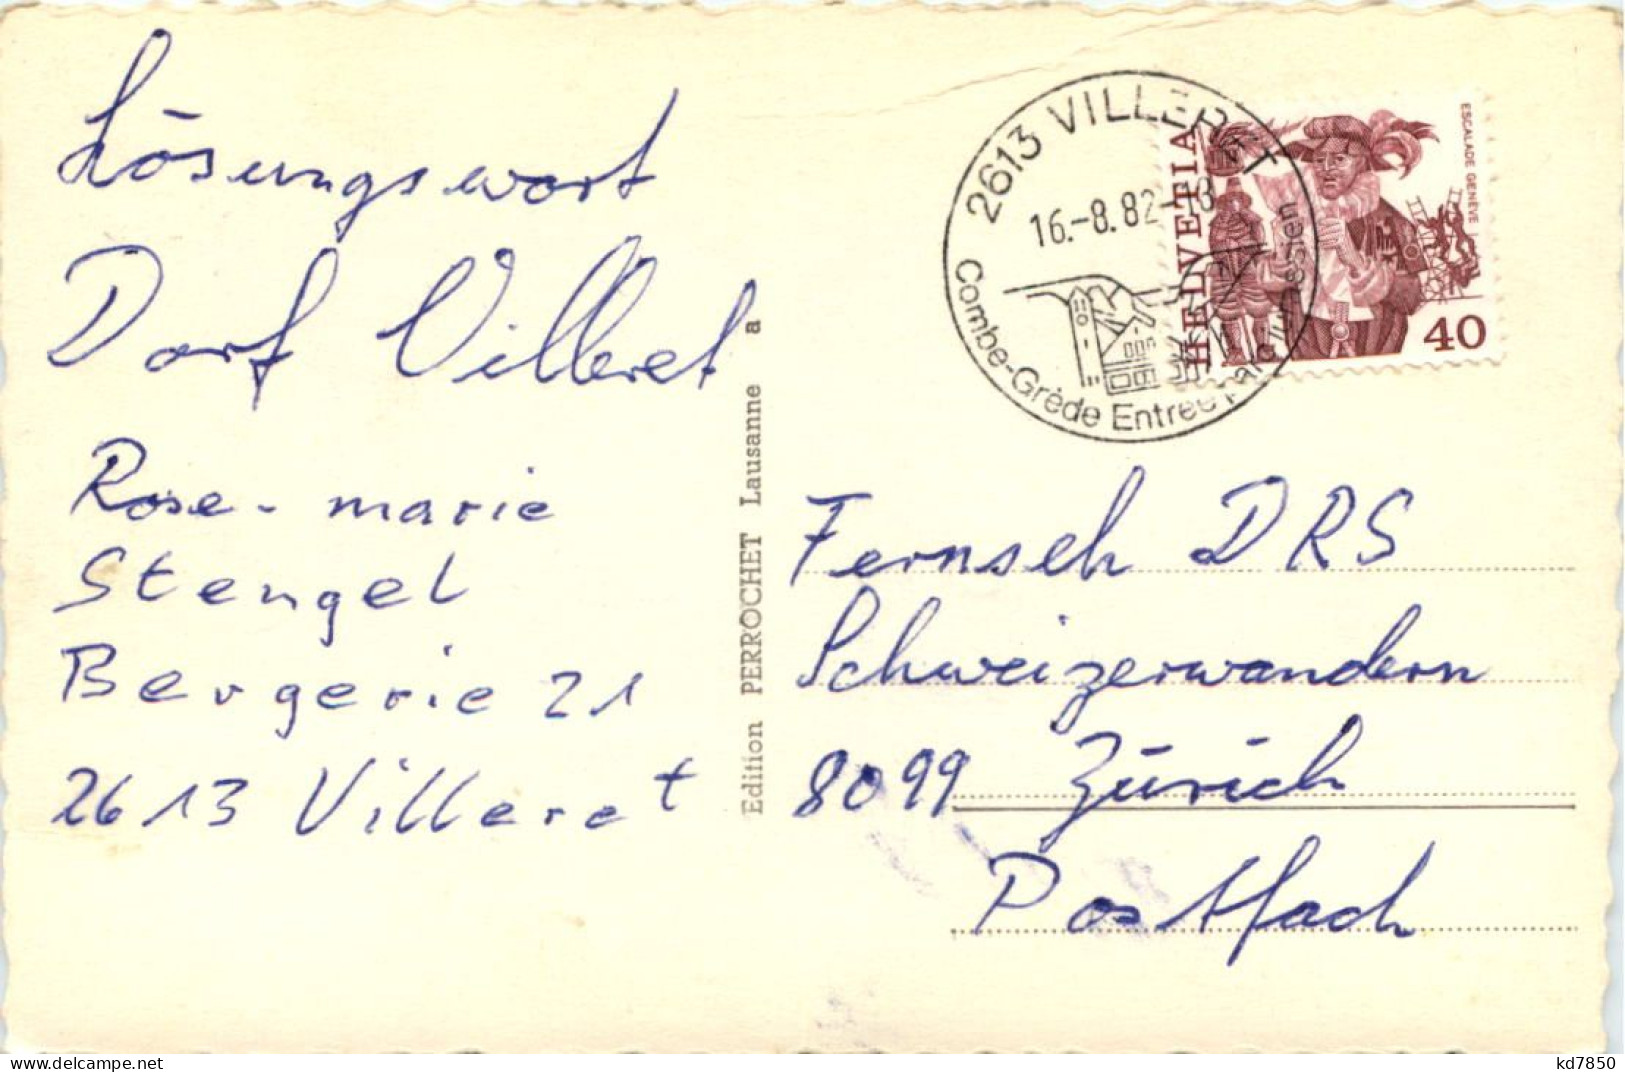 Lösungswort
Dorf Villeret
Rose-marie
Stengel
Bergerie 21
2613 Villeret
Edition PERROCHET Lausanne a
2613 VILLERET
16.-8.82-18
Combe-Grède Entrée
HELVETIA
ESCALADE GENÈVE
40
Fernseh DRS
Schweizerwandern
8099 Zürich
Postfach
www.delcampe.net
kd7850